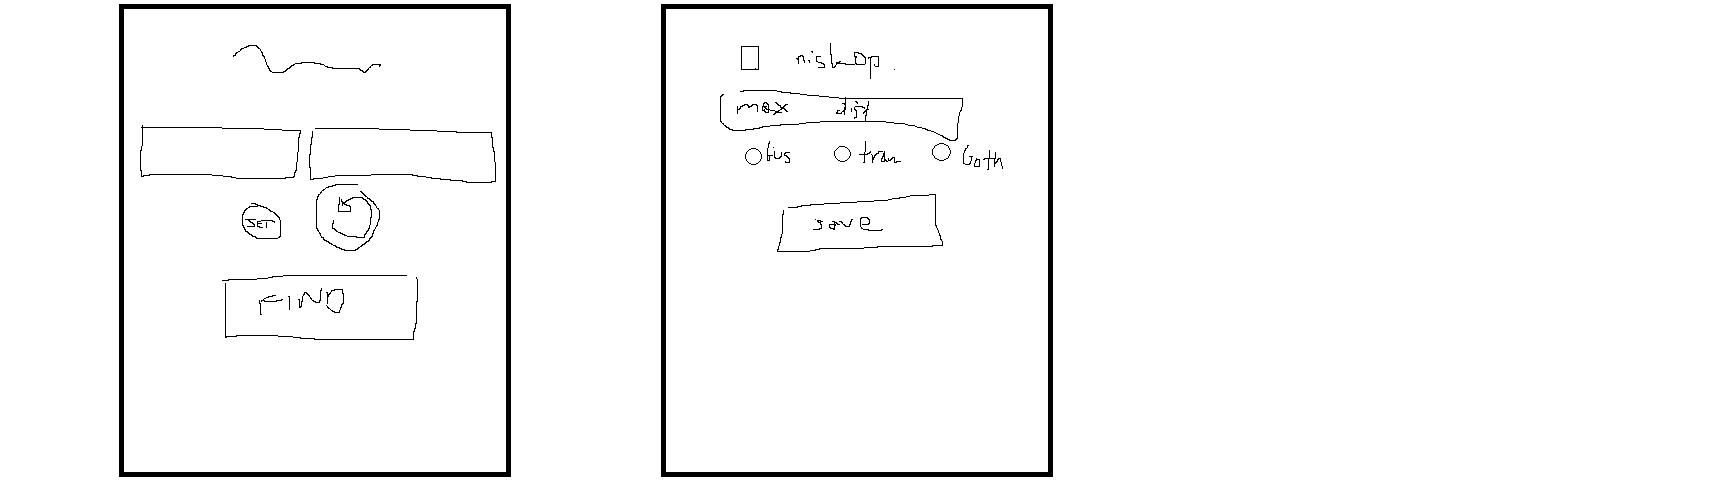 SET
FIND
max dist
bus tram both
save